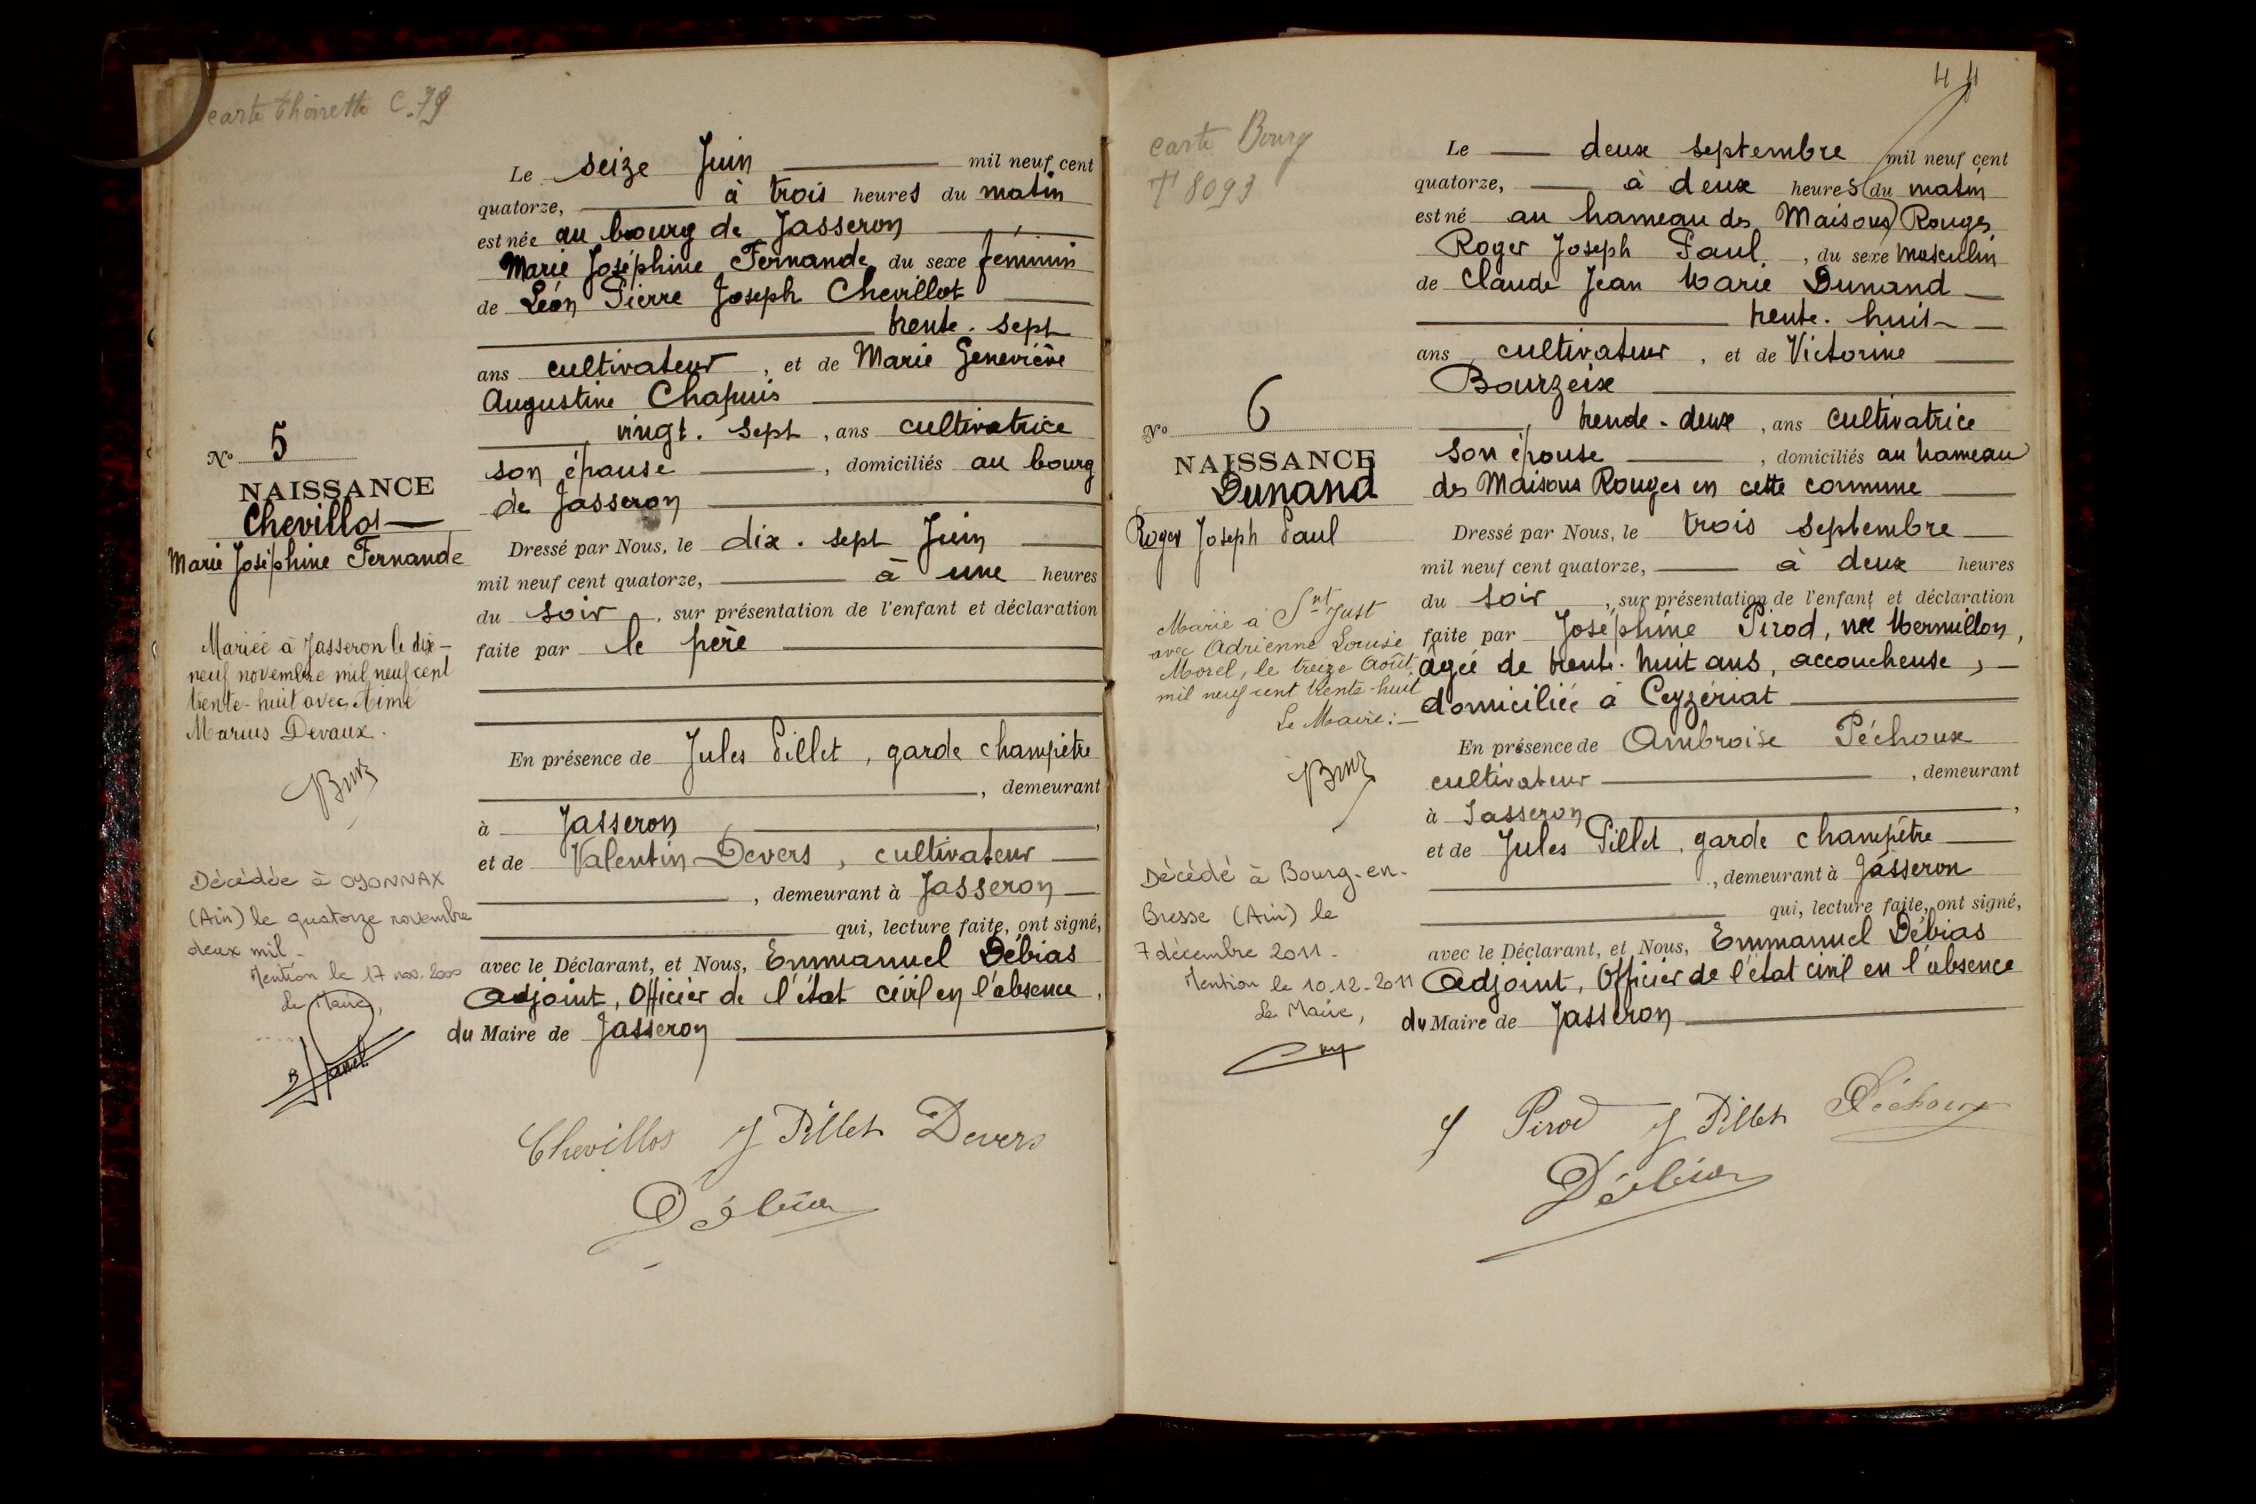 carte thoirette C.79
Le seize Juin mil neuf cent
quatorze, à trois heures du matin
est née au bourg de Jasseron
Marie Joséphine Fernande du sexe féminin
de Léon Pierre Joseph Chevillot
trente-sept
ans cultivateur, et de Marie Geneviève
Augustine Chapuis
, vingt-sept, ans cultivatrice
son épouse, domiciliés au bourg
de Jasseron
Dressé par Nous, le dix-sept Juin
mil neuf cent quatorze, à une heures
du soir, sur présentation de l'enfant et déclaration
faite par le père
En présence de Jules Pillet, garde champêtre
, demeurant
à Jasseron,
et de Valentin Devers, cultivateur
, demeurant à Jasseron
qui, lecture faite, ont signé,
avec le Déclarant, et Nous, Emmanuel Débias
Adjoint, Officier de l'état civil en l'absence
du Maire de Jasseron
Chevillot J Pillet Devers
Débias
No 5
NAISSANCE
Chevillot
Marie Joséphine Fernande
Mariée à Jasseron le dix-
neuf novembre mil neuf cent
trente-huit avec Aimé
Marius Devaux.
Décédée à OYONNAX
(Ain) le quatorze novembre
deux mil-
Mention le 17 nov. 2000
Le Maire,
44
carte Bourg
T 8093
Le deux septembre mil neuf cent
quatorze, à deux heures du matin
est né au hameau des Maisons Rouges
Roger Joseph Paul, du sexe masculin
de Claude Jean Marie Dunand
trente-huit
ans cultivateur, et de Victorine
Bourzeix
, trende-deux, ans cultivatrice
son épouse, domiciliés au hameau
des Maisons Rouges en cette commune
Dressé par Nous, le trois septembre
mil neuf cent quatorze, à deux heures
du soir, sur présentation de l'enfant et déclaration
faite par Joséphine Pirod, née Mermillon,
âgée de trente-huit ans, accoucheuse,
domiciliée à Ceyzériat
En présence de Ambroise Péchoux
cultivateur, demeurant
à Jasseron,
et de Jules Pillet, garde champêtre
, demeurant à Jasseron
qui, lecture faite, ont signé,
avec le Déclarant, et Nous, Emmanuel Débias
Adjoint, Officier de l'état civil en l'absence
du Maire de Jasseron
J Pirod J Pillet Péchoux
Débias
No 6
NAISSANCE
Dunand
Roger Joseph Paul
Marié à Snt Just
avec Adrienne Louise
Morel, le treize Août
mil neuf cent trente-huit
Le Maire:
Décédé à Bourg-en-
Bresse (Ain) le
7 décembre 2011-
Mention le 10.12.2011
Le Maire,